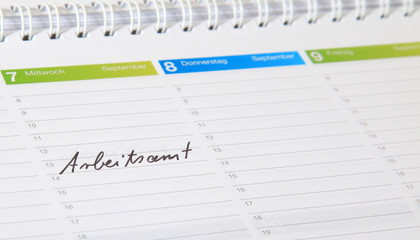 7 Mittwoch September 8 Donnerstag September 9 Freitag
7
8
9
10
11
12
13 Arbeitsamt
14
15
16
17
18
19
7
8
9
10
11
12
13
14
15
16
17
18
19
7
8
9
10
11
12
13
14
15